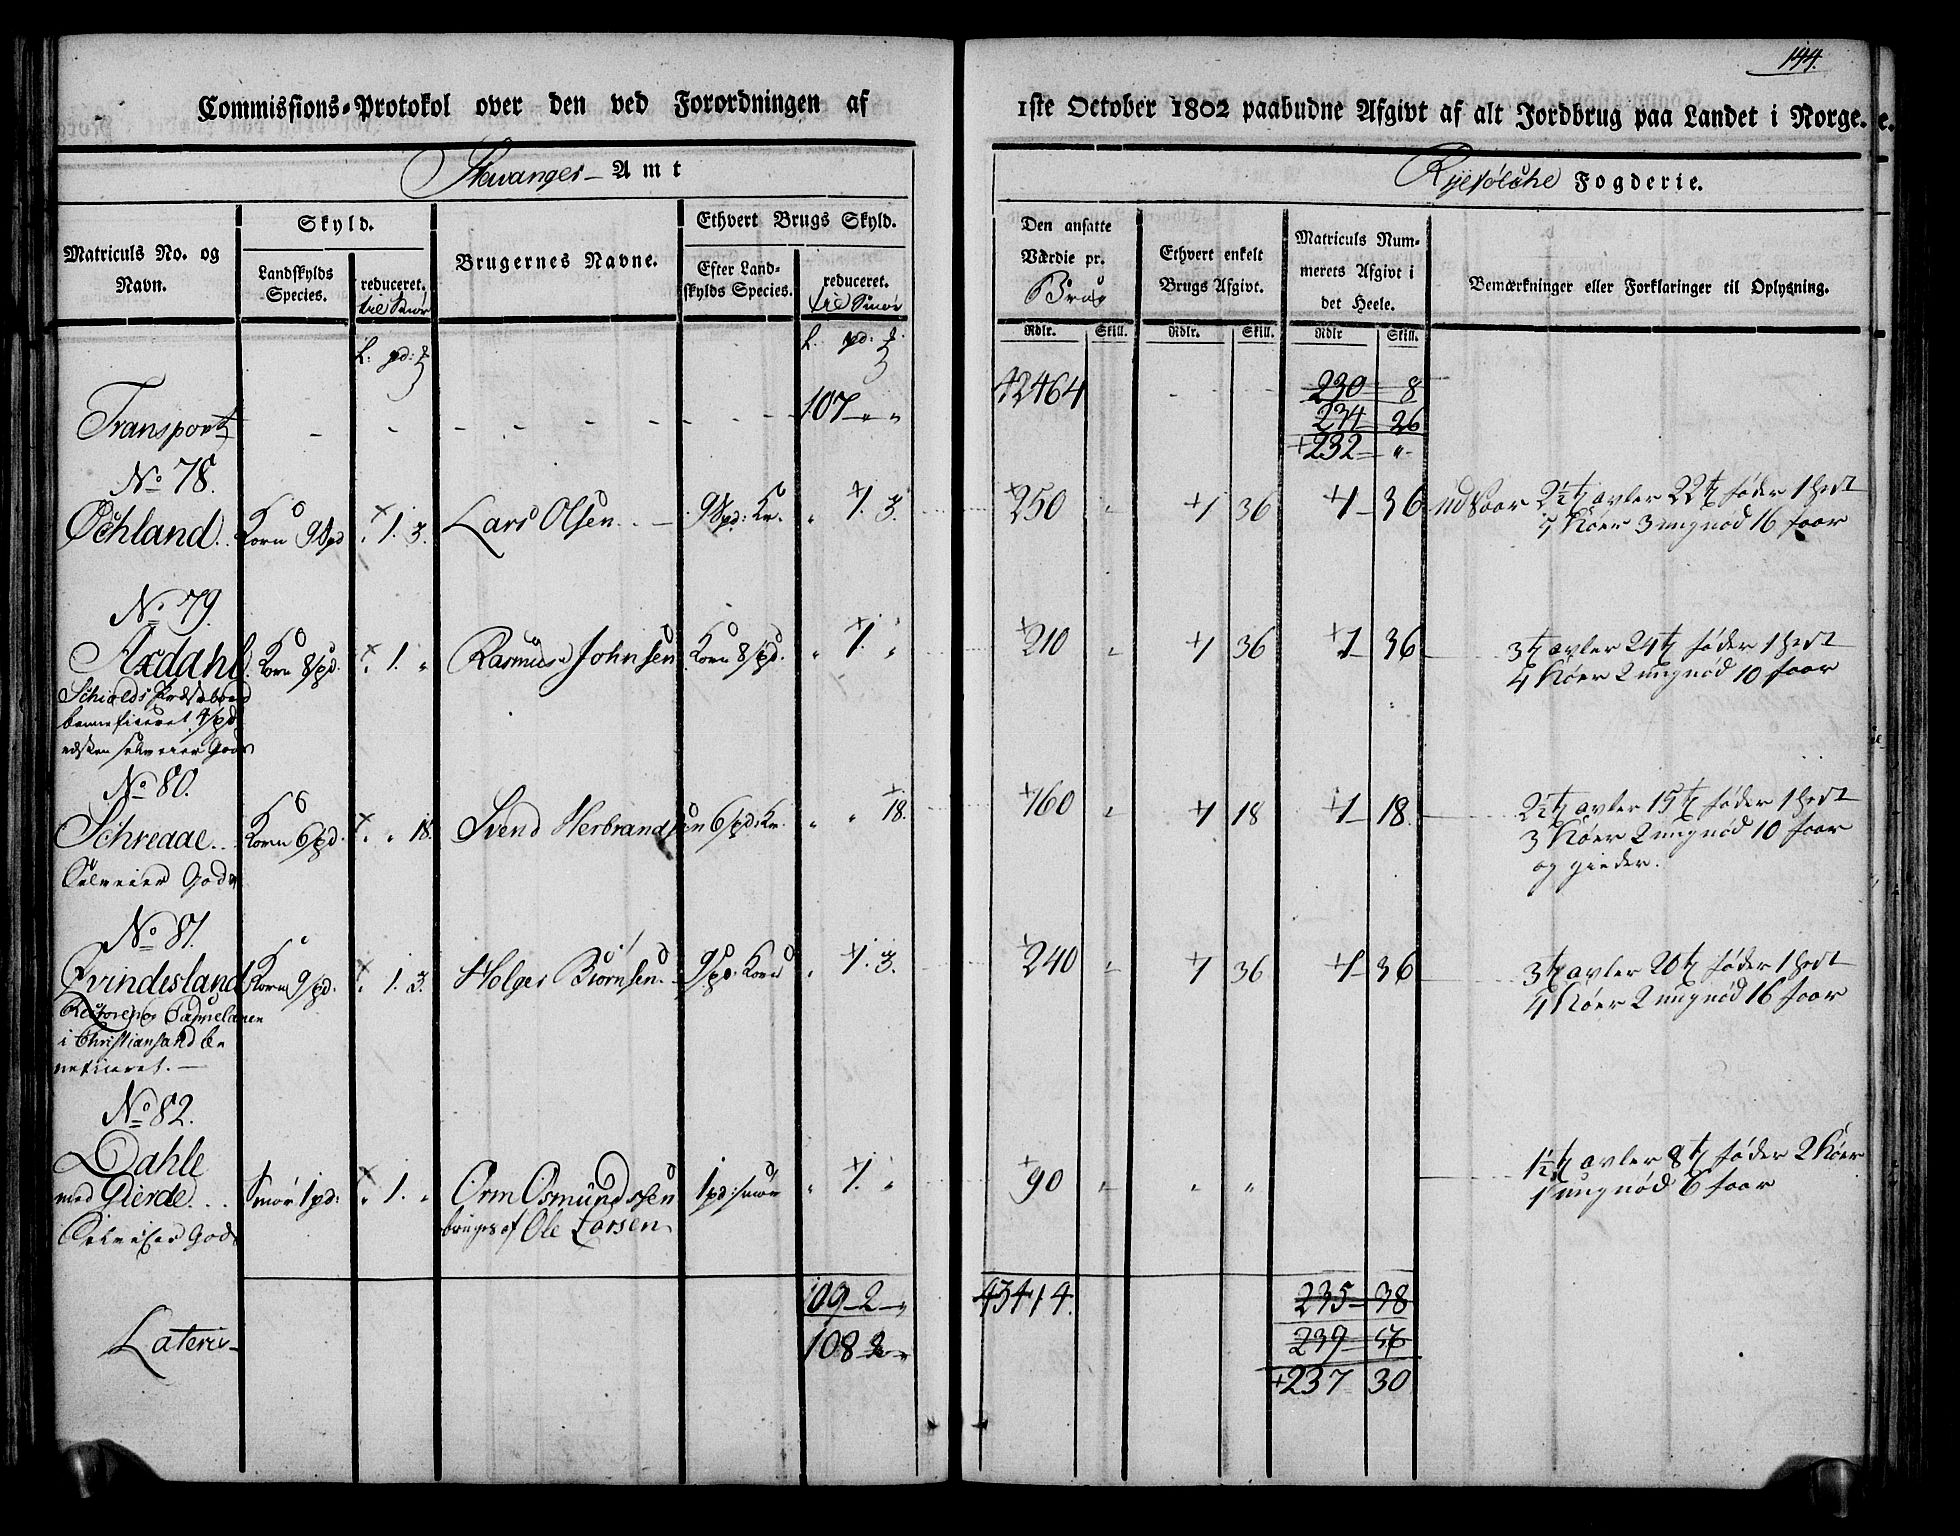 144.
Commissions-Protokol over den ved Forordningen af 1ste October 1802 paabudne Afgivt af alt Jordbrug paa Landet i Norge.
Stavanger Amt
Ryefølche Fogderie.
Matriculs No. og Navn.
Skyld.
Landskylds Species.
reduceret. til Smør
Brugernes Navne.
Ethvert Brugs Skyld.
Efter Landskylds Species.
reduceret. til Smør
Den ansatte Værdie pr. Brug
Ethvert enkelt Brugs Afgivt.
Matriculs Nummerets Afgivt i det Heele.
Bemærkninger eller Forklaringer til Oplysning.
Rdlr. Skill. Rdlr. Skill. Rdlr Skill.
Transport 107 " " 42464 230 8
234 26
+232 "
No 78.
Øchland Korn 9 Spd " 1. 3. Lars Olsen 9 Spd: Kn. " 1. 3. 250 " 1 36 1 36 udsaar 2½ t avler 22 t føder 1 hest
5 Køer 3 ungnød 16 faar
No 79.
Axdahl Korn 8 spd. " 1. " Rasmus Johnsen Korn 8 spd. " 1. " 210 " 1 36 1 36 3 t avler 24 t føder 1 hest
4 Køer 2 ungnød 10 faar
Schiolds Præstebord
beneficeret 4 spd
resten selveier Gods
No 80.
Schreaae Korn 6 spd. " " 18. Svend Herbrandsen 6 spd: Kn. " " 18. 160 " 1 18 1 18. 2½ t avler 15 t føder 1 hest
3 Køer 2 ungnød 10 faar
og gieder.
Selveier Gods
No 81.
Qvindesland Korn 9 spd. " 1. 3. Holger Biørnsen 9 spd. Korn " 1. 3. 240 " 1 36 1 36 3 t avler 20 t føder 1 hest
4 Køer 2 ungnød 16 faar
i Christiansand be
neficeret.
No 82.
Dahle
med Gierde Smør 1 pd: " 1. " Orm Osmundssen 1 pd: smør " 1. " 90 " " " 1½ t avler 8 t føder 2 Køer
1 ungnød 6 faar
Selveier Gods bruges af Ole Larsen
109 2 " 43414. 235 38
Lateris 108 2 " 239 56
+237 30